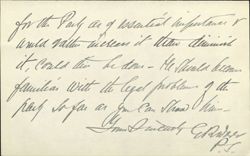 for the Party as of essential importance &
would rather increase it than diminish
it. Could this be done - He should become
familiar with the legal problems of the
Party so far as you can show him -
Yours Sincerely